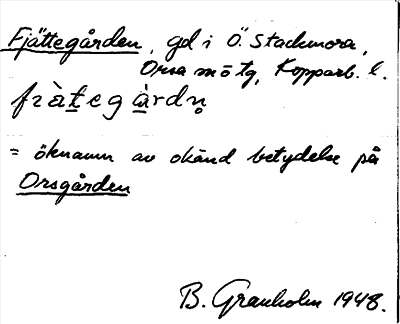 Fjättegården, gd i Ö. Stackmora,
Orsa sn o tg, Kopparb. l.
fràtegàrdn̥
= öknamn av okänd betydelse på
Orsgården
B. Granholm 1948.